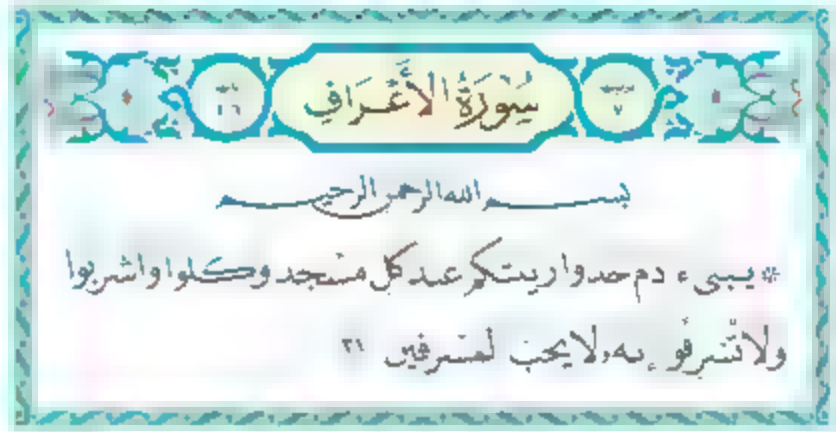 سُورَةُ الأَعْرَافِ
٧
بسم الله الرحمن الرحيم
يبنىء ادم خذوا زينتكم عند كل مسجد وكلوا واشربوا
ولا تسرفوا إنه لا يحب المسرفين ٣١